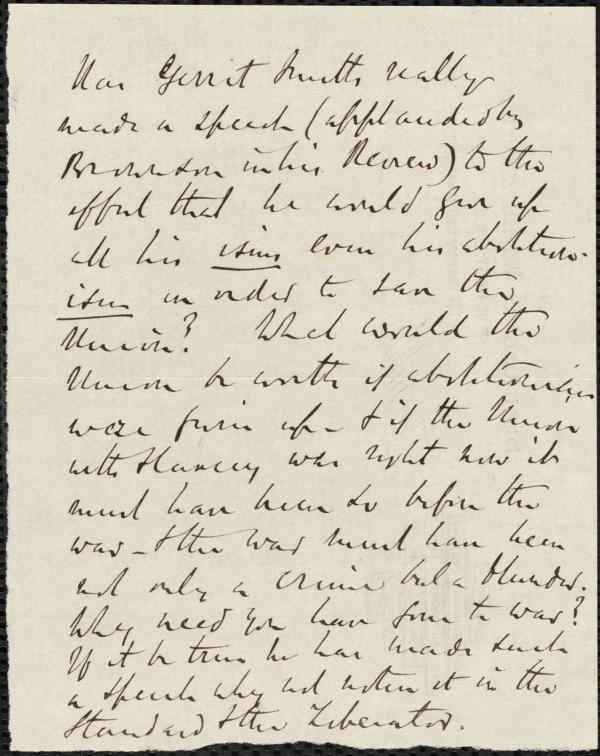 Has Gerrit Smith really
made a speech (applauded by
Brownson in his Review) to the
effect that he would give up
all his isms even his abolition-
ism in order to save the
Union? What would the
Union be worth if abolitionism
were given up - & if the Union
with Slavery was right now it
must have been so before the
war - & the war must have been
not only a crime but a blunder.
Why need you have gone to war?
If it be true he has made such
a speech why not notice it in the
Standard & the Liberator.